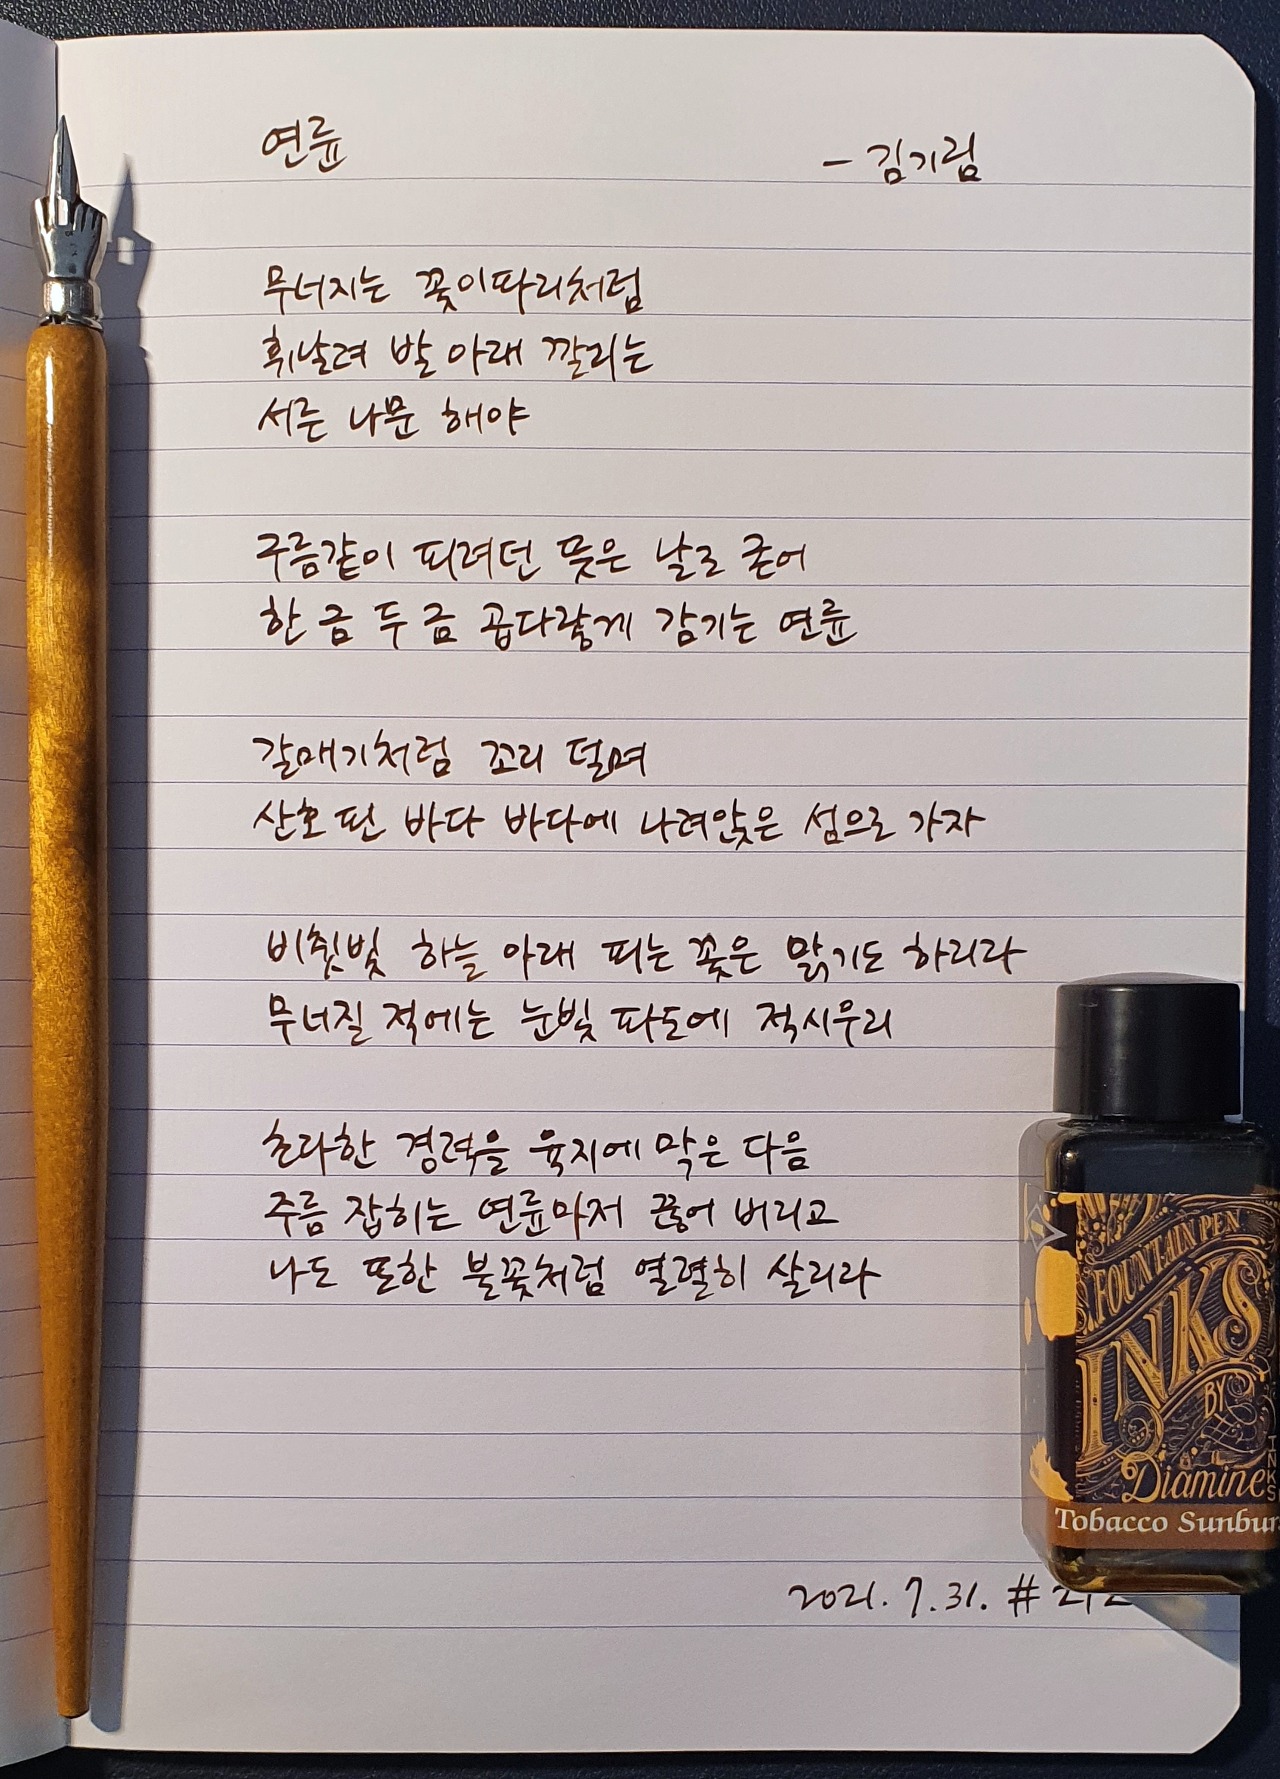 연륜 - 김기림
무너지는 꽃이파리처럼
휘날려 발 아래 깔리는
서른 나문 해야
구름같이 피려던 뜻은 날로 굳어
한 금 두 금 곱다랗게 감기는 연륜
갈매기처럼 꼬리 덜며
산호 핀 바다 바다에 나려앉은 섬으로 가자
비췻빛 하늘 아래 피는 꽃은 맑기도 하리라
무너질 적에는 눈빛 파도에 적시우리
초라한 경력을 육지에 막은 다음
주름 잡히는 연륜마저 끊어 버리고
나도 또한 불꽃처럼 열렬히 살리라
FOUNTAIN PEN
INKS
BY
Diamine
Tobacco
2021. 7. 31. #